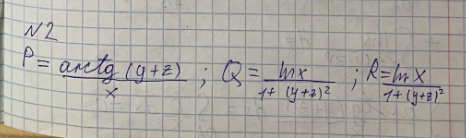 N2
P = arctg (y+z) / x ; Q = ln x / 1 + (y+z)² ; R = ln x / 1 + (y+z)²